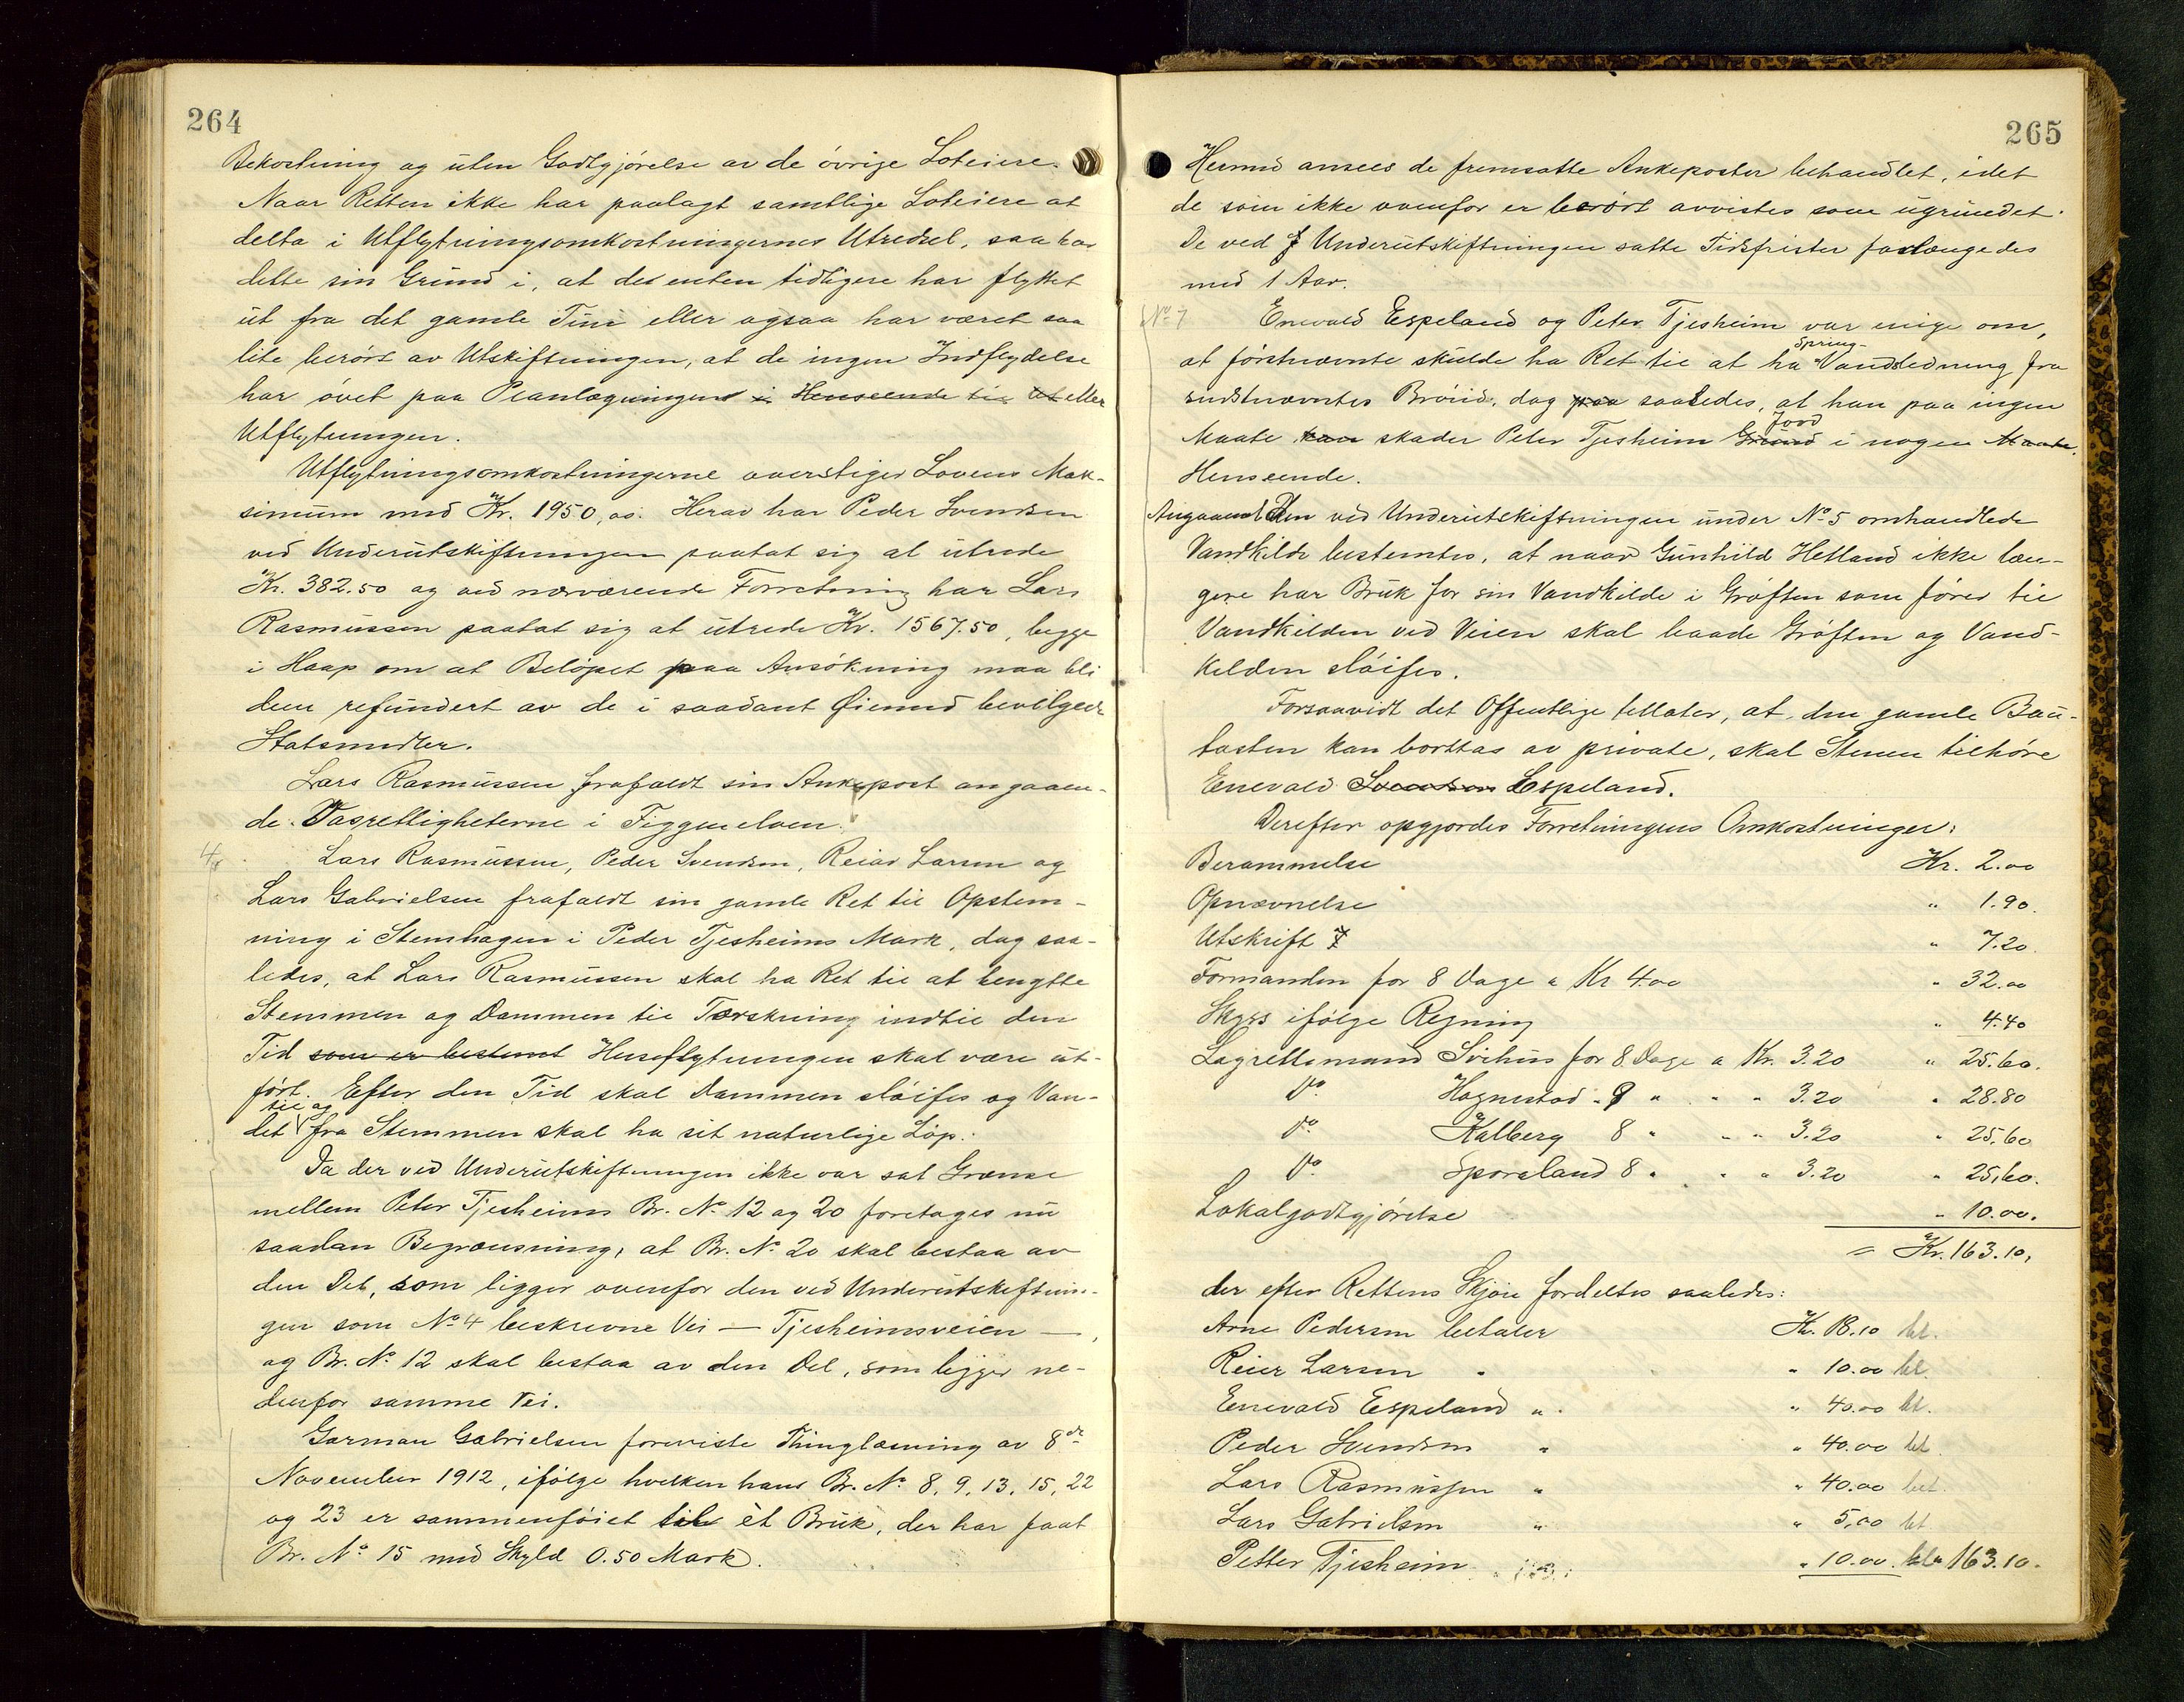 264
Bekostning og uten Godtgjørelse av de øvrige Loteiere.
Naar Retten ikke har paalagt samtlige Loteiere at
delta i Utflytningsomkostningernes Utredsel, saa har
dette sin Grund i, at de enten tidligere har flyttet
ut fra det gamle Tun eller ogsaa har været saa
lite berørt av Utskiftningen, at de ingen Indflydelse
har øvet paa Planlægningen i Henseende til Ut eller
Utflytningen.
Utflytningsomkostningerne overstiger Lovens Mak-
simum med Kr. 1950,00. Herav har Peder Svendsen
ved Underutskiftningen paatat sig at utrede
Kr. 382.50 og ved nærværende Forretning har Lars
Rasmussen paatat sig at utrede Kr. 1567.50, begge
i Haap om at Beløpet paa Ansøkning maa bli
dem refundert av de i saadant Øiemed bevilgede
Statsmidler.
Lars Rasmussen frafaldt sin Ankepost angaaen-
de Vasrettigheterne i Figgenelven.
4/ Lars Rasmussen, Peder Svendsen, Reiar Larsen og
Lars Gabrielsen frafaldt sin gamle Ret til Opstem-
ning i Stemhagen i Peder Tjesheims Mark, dog saa-
ledes, at Lars Rasmussen skal ha Ret til at benytte
Stemmen og Dammen til Tærskning indtil den
Tid som er bestemt Husflytningen skal være ut-
ført. Efter den Tid skal Dammen sløifes og Van-
til og
det fra Stemmen skal ha sit naturlige Løp.
Da der ved Underutskiftningen ikke var sat Grænse
mellem Peter Tjesheims Br. No 12 og 20 foretages nu
saadan Begrænsning, at Br. No 20 skal bestaa av
den Del, som ligger ovenfor den ved Underutskiftnin-
gen som No 4 beskrevne Vei — Tjesheimsveien —,
og Br. No 12 skal bestaa av den Del, som ligger ne-
denfor samme Vei.
Gorman Gabrielsen foreviste Thinglæsning av 8de
November 1912, ifølge hvilken hans Br. No 8, 9, 13, 15, 22
og 23 er sammenføiet til ét Bruk, der har faat
Br. No 15 med Skyld 0.50 Mark.
265
Hermed ansees de fremsatte Ankeposter behandlet, idet
de som ikke ovenfor er berørt avvistes som ugrundet.
De ved Underutskiftningen satte Tidsfrister forlængedes
med 1 Aar.
No 7 Enevald Espeland og Peter Tjesheim var enige om,
Spring-
at førstnævnte skulde ha Ret til at ha Vandledning fra
sidstnævntes Brønd, dog paa saaledes, at han paa ingen
Jord
Maate kan skader Peter Tjesheim Grund i nogen Maate.
Henseende.
Angaaende den ved Underutskiftningen under No 5 omhandlede
Vandkilde bestemtes, at naar Gunhild Hetland ikke læn-
gere har Bruk for sin Vandkilde i Grøften som fører til
Vandkilden ved Veien skal baade Grøften og Vand-
kilden sløifes.
Forsaavidt det Offentlige tillater, at den gamle Bau-
tasten kan borttas av private, skal Stenen tilhøre
Enevald Svendsen Espeland.
Derefter opgjordes Forretningens Omkostninger:
Berammelse Kr. 2.00
Opnævnelse " 1.90.
Utskrift 7 " 7.20.
Formanden for 8 Dage a Kr 4.00 " 32.00
Skyss ifølge Regning " 4.40
Lagrettemand Svihus for 8 Dage a Kr. 3.20 " 25.60.
Do Hognestad " 9 " " " 3.20 " 28.80
do Kalberg 8 " " " 3.20 " 25.60
Do Sporaland 8 " " " 3.20 " 25,60.
Lokalgodtgjørelse " 10.00.
= Kr. 163.10,
der efter Rettens Skjøn fordeltes saaledes:
Arne Pedersen betaler Kr. 18.10 bet.
Reier Larsen " " 10.00 bet.
Enevald Espeland " " 40.00 bet.
Peder Svendsen " " 40.00 bet.
Lars Rasmussen " " 40.00 bet.
Lars Gabrielsen " " 5,00 bet
Petter Tjesheim " 10.00. bet 163.10.